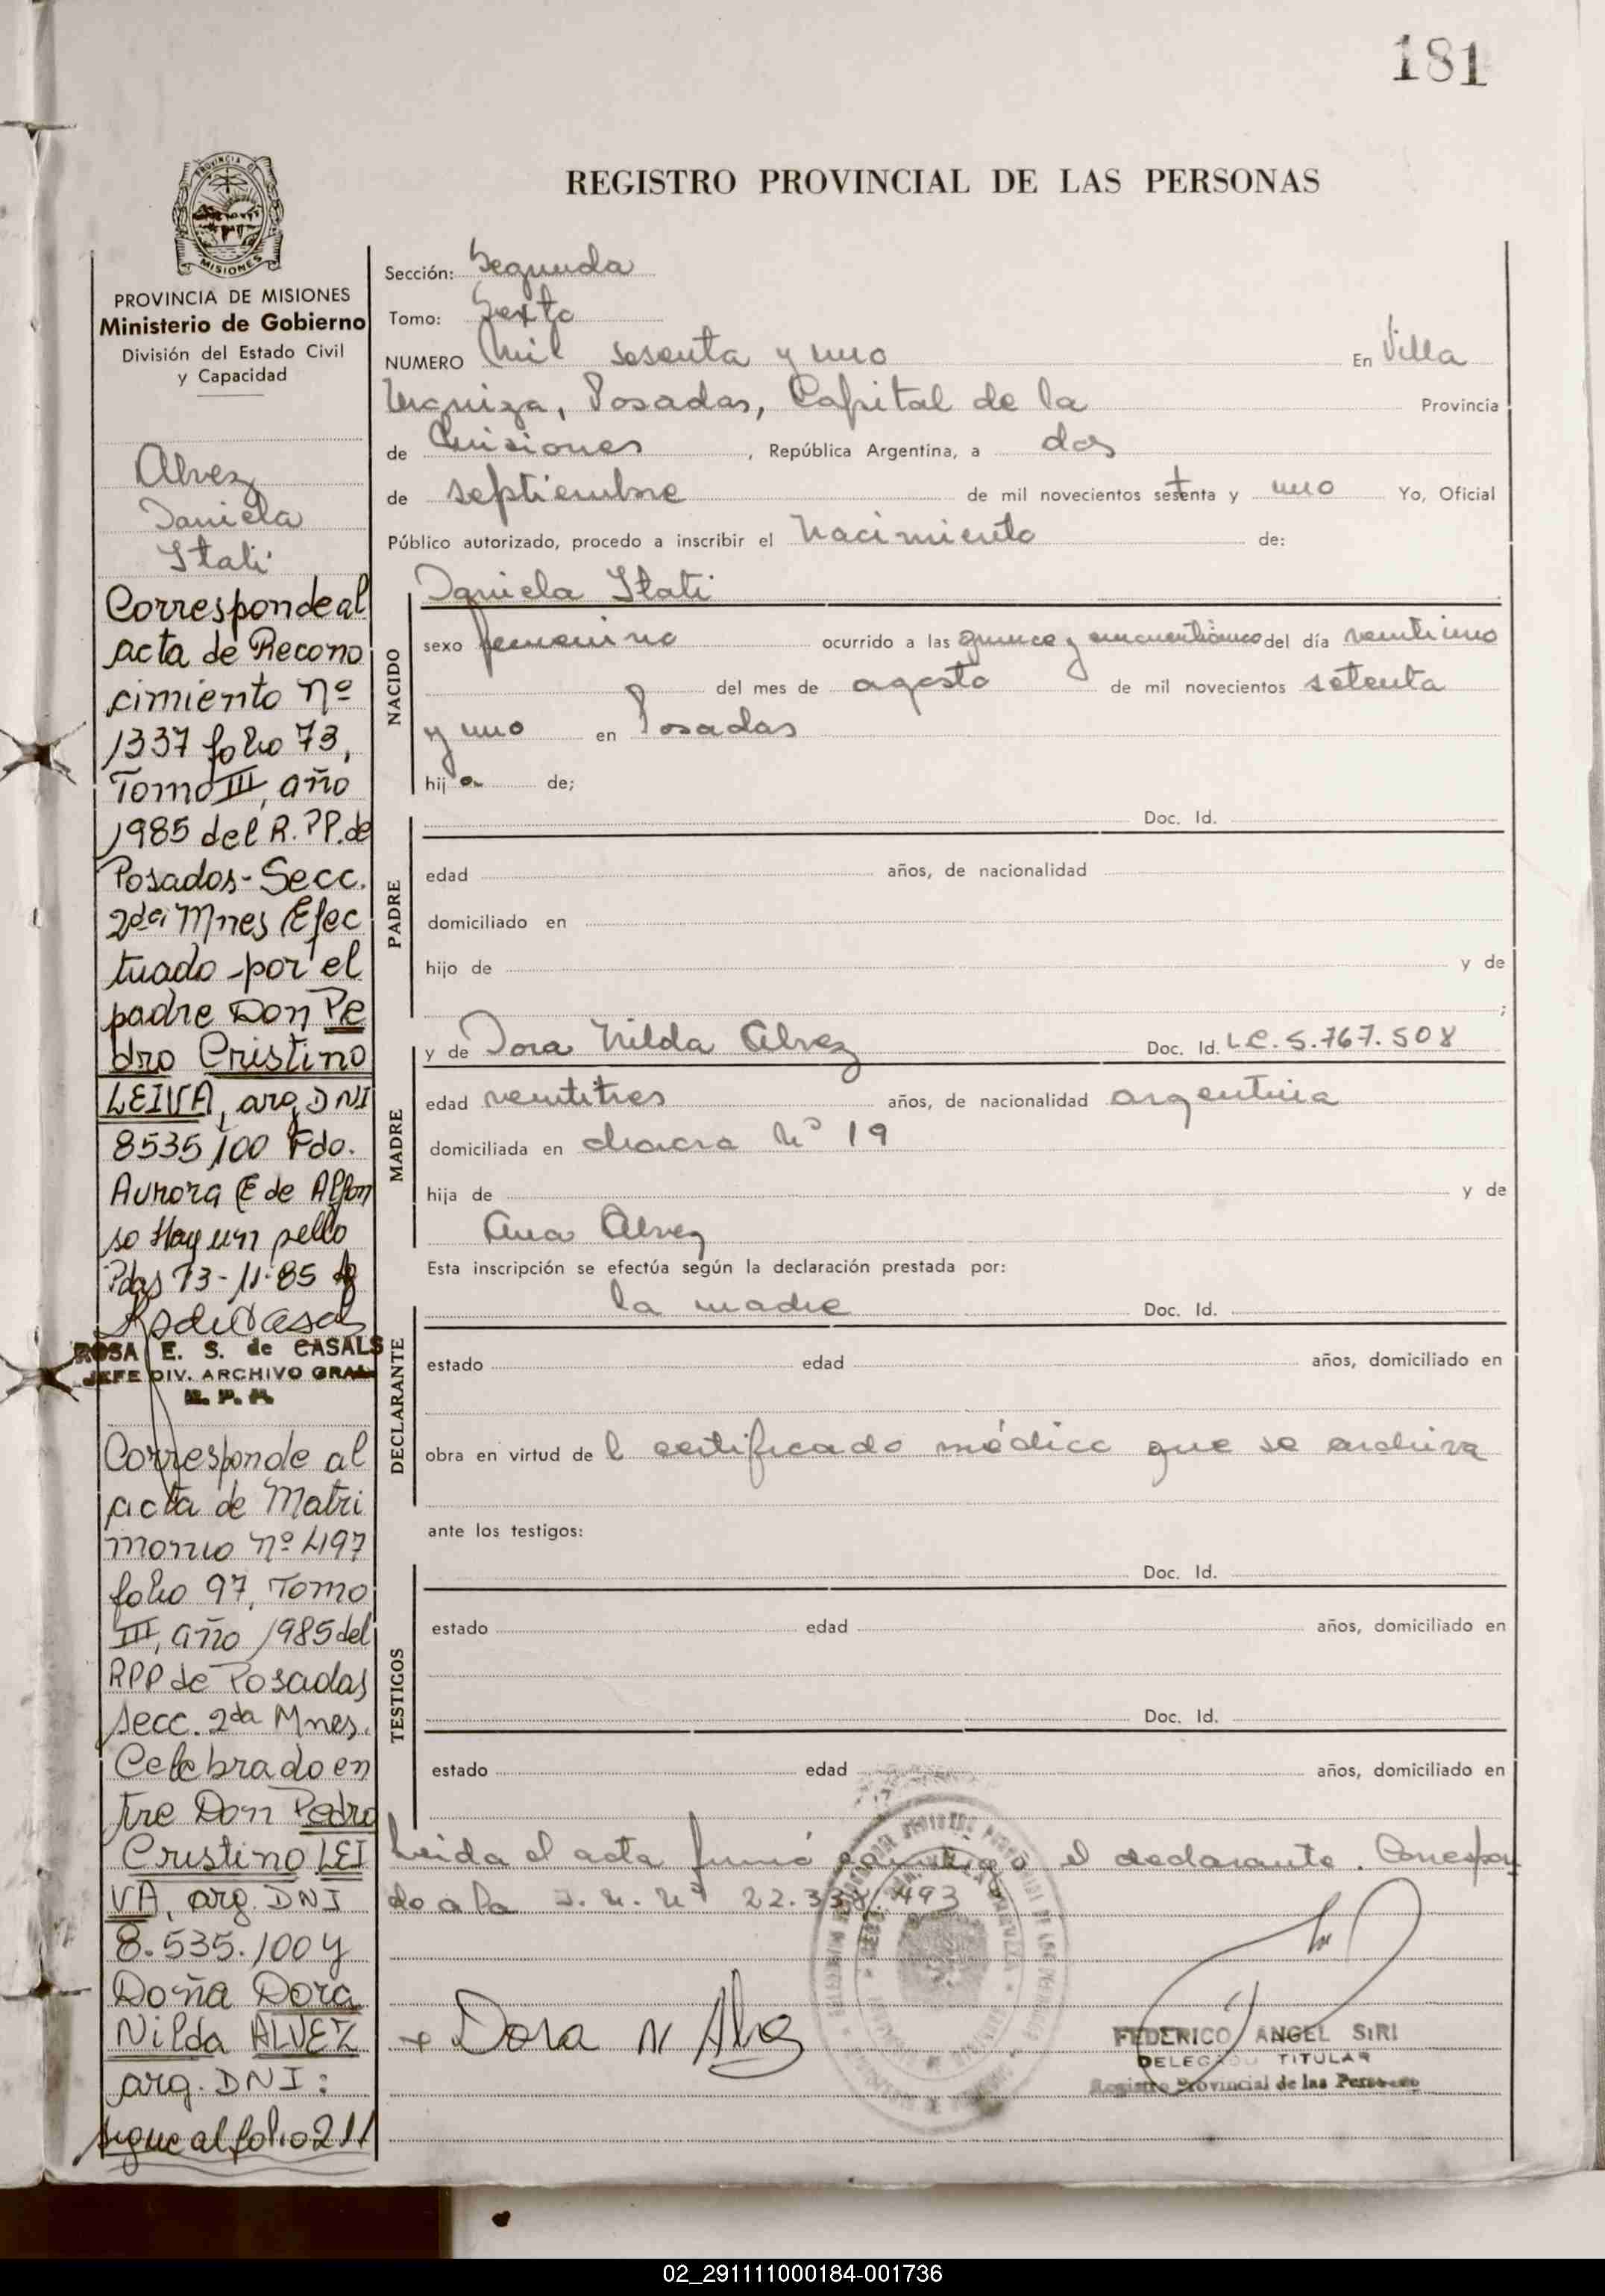 181
PROVINCIA DE
MISIONES
REGISTRO PROVINCIAL DE LAS PERSONAS
PROVINCIA DE MISIONES
Ministerio de Gobierno
División del Estado Civil
y Capacidad
Alvez
Daniela
Itatí
Corresponde al
acta de Recono
cimiento nº
1337 folio 73,
Tomo III, año
1985 del R.PP. de
Posadas-Secc.
2da Mnes Efec
tuado por el
padre Don Pe
dro Cristino
LEIVA, arg DNI
8535100 Fdo.
Aurora E de Alfon
so Hay un sello
Pdas 13-11-85
ROSA E. S. de CASALS
JEFE DIV. ARCHIVO GRAL
R. P. P.
Corresponde al
acta de Matri
monio nº 497
folio 97, Tomo
III, año 1985 del
RPP de Posadas
secc. 2da Mnes.
Celebrado en
tre Don Pedro
Cristino LEI
VA, arg. DNI
8.535.100 y
Doña Dora
Nilda ALVEZ
arg. DNI:
sigue al folio 211
Sección: Segunda
Tomo: Sexto
NUMERO Mil sesenta y uno En Villa
Urquiza, Posadas, Capital de la Provincia
de Misiones, República Argentina, a dos
de septiembre de mil novecientos setenta y uno Yo, Oficial
Público autorizado, procedo a inscribir el Nacimiento de:
NACIDO
Daniela Itati
sexo femenino ocurrido a las quince y cincuenticinco del día veintiuno
del mes de agosto de mil novecientos setenta
y uno en Posadas
hija de;
PADRE
Doc. Id.
edad años, de nacionalidad
domiciliado en
hijo de y de
;
MADRE
y de Dora Nilda Alvez Doc. Id. L.C. 5.767.508
edad veintitres años, de nacionalidad argentina
domiciliada en chacra Nº 19
hija de y de
Ana Alvez
Esta inscripción se efectúa según la declaración prestada por:
DECLARANTE
la madre Doc. Id.
estado edad años, domiciliado en
obra en virtud del certificado médico que se archiva
ante los testigos:
TESTIGOS
Doc. Id.
estado edad años, domiciliado en
Doc. Id.
estado edad años, domiciliado en
Leida el acta firmó conmigo el declarante. Correspon
de a la I. N. Nº 22.338.493
Dora N Alvez
FEDERICO ANGEL SIRI
DELEGADO TITULAR
Registro Provincial de las Personas
02_291111000184-001736